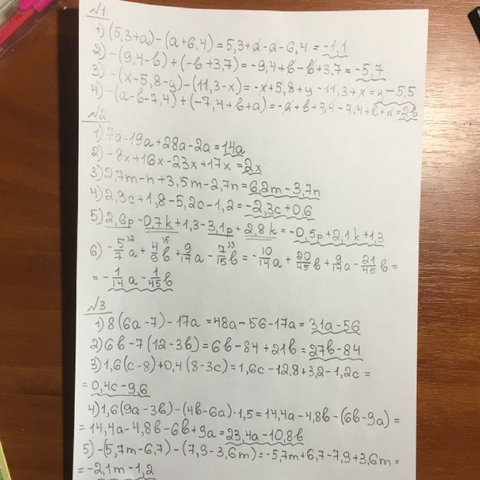 №1
1) (5,3+a)-(a+6,4)=5,3+a-a-6,4=-1,1
2) -(9,4-b)+(-b+3,7)=-9,4+b-b+3,7=-5,7
3) -(x-5,8-y)-(11,3-x)=-x+5,8+y-11,3+x=y-5,5
4) -(a-b-7,4)+(-7,4+b+a)=-a+b+7,4-7,4+b+a=2b
№2
1) 7a-19a+28a-2a=14a
2) -8x+16x-23x+17x=2x
3) 2,7m-n+3,5m-2,7n=6,2m-3,7n
4) 2,3c+1,8-5,2c-1,2=-2,3c+0,6
5) 2,6p-0,7k+1,3-3,1p+2,8k=-0,5p+2,1k+1,3
6) -5/7a+4/9b+9/14a-7/15b=-10/14a+20/45b+9/14a-21/45b=
=-1/14a-1/45b
№3
1) 8(6a-7)-17a=48a-56-17a=31a-56
2) 6b-7(12-3b)=6b-84+21b=27b-84
3) 1,6(c-8)+0,4(8-3c)=1,6c-12,8+3,2-1,2c=
=0,4c-9,6
4) 1,6(9a-3b)-(4b-6a)·1,5=14,4a-4,8b-(6b-9a)=
=14,4a-4,8b-6b+9a=23,4a-10,8b
5) -(5,7m-6,7)-(7,9-3,6m)=-5,7m+6,7-7,9+3,6m=
=-2,1m-1,2